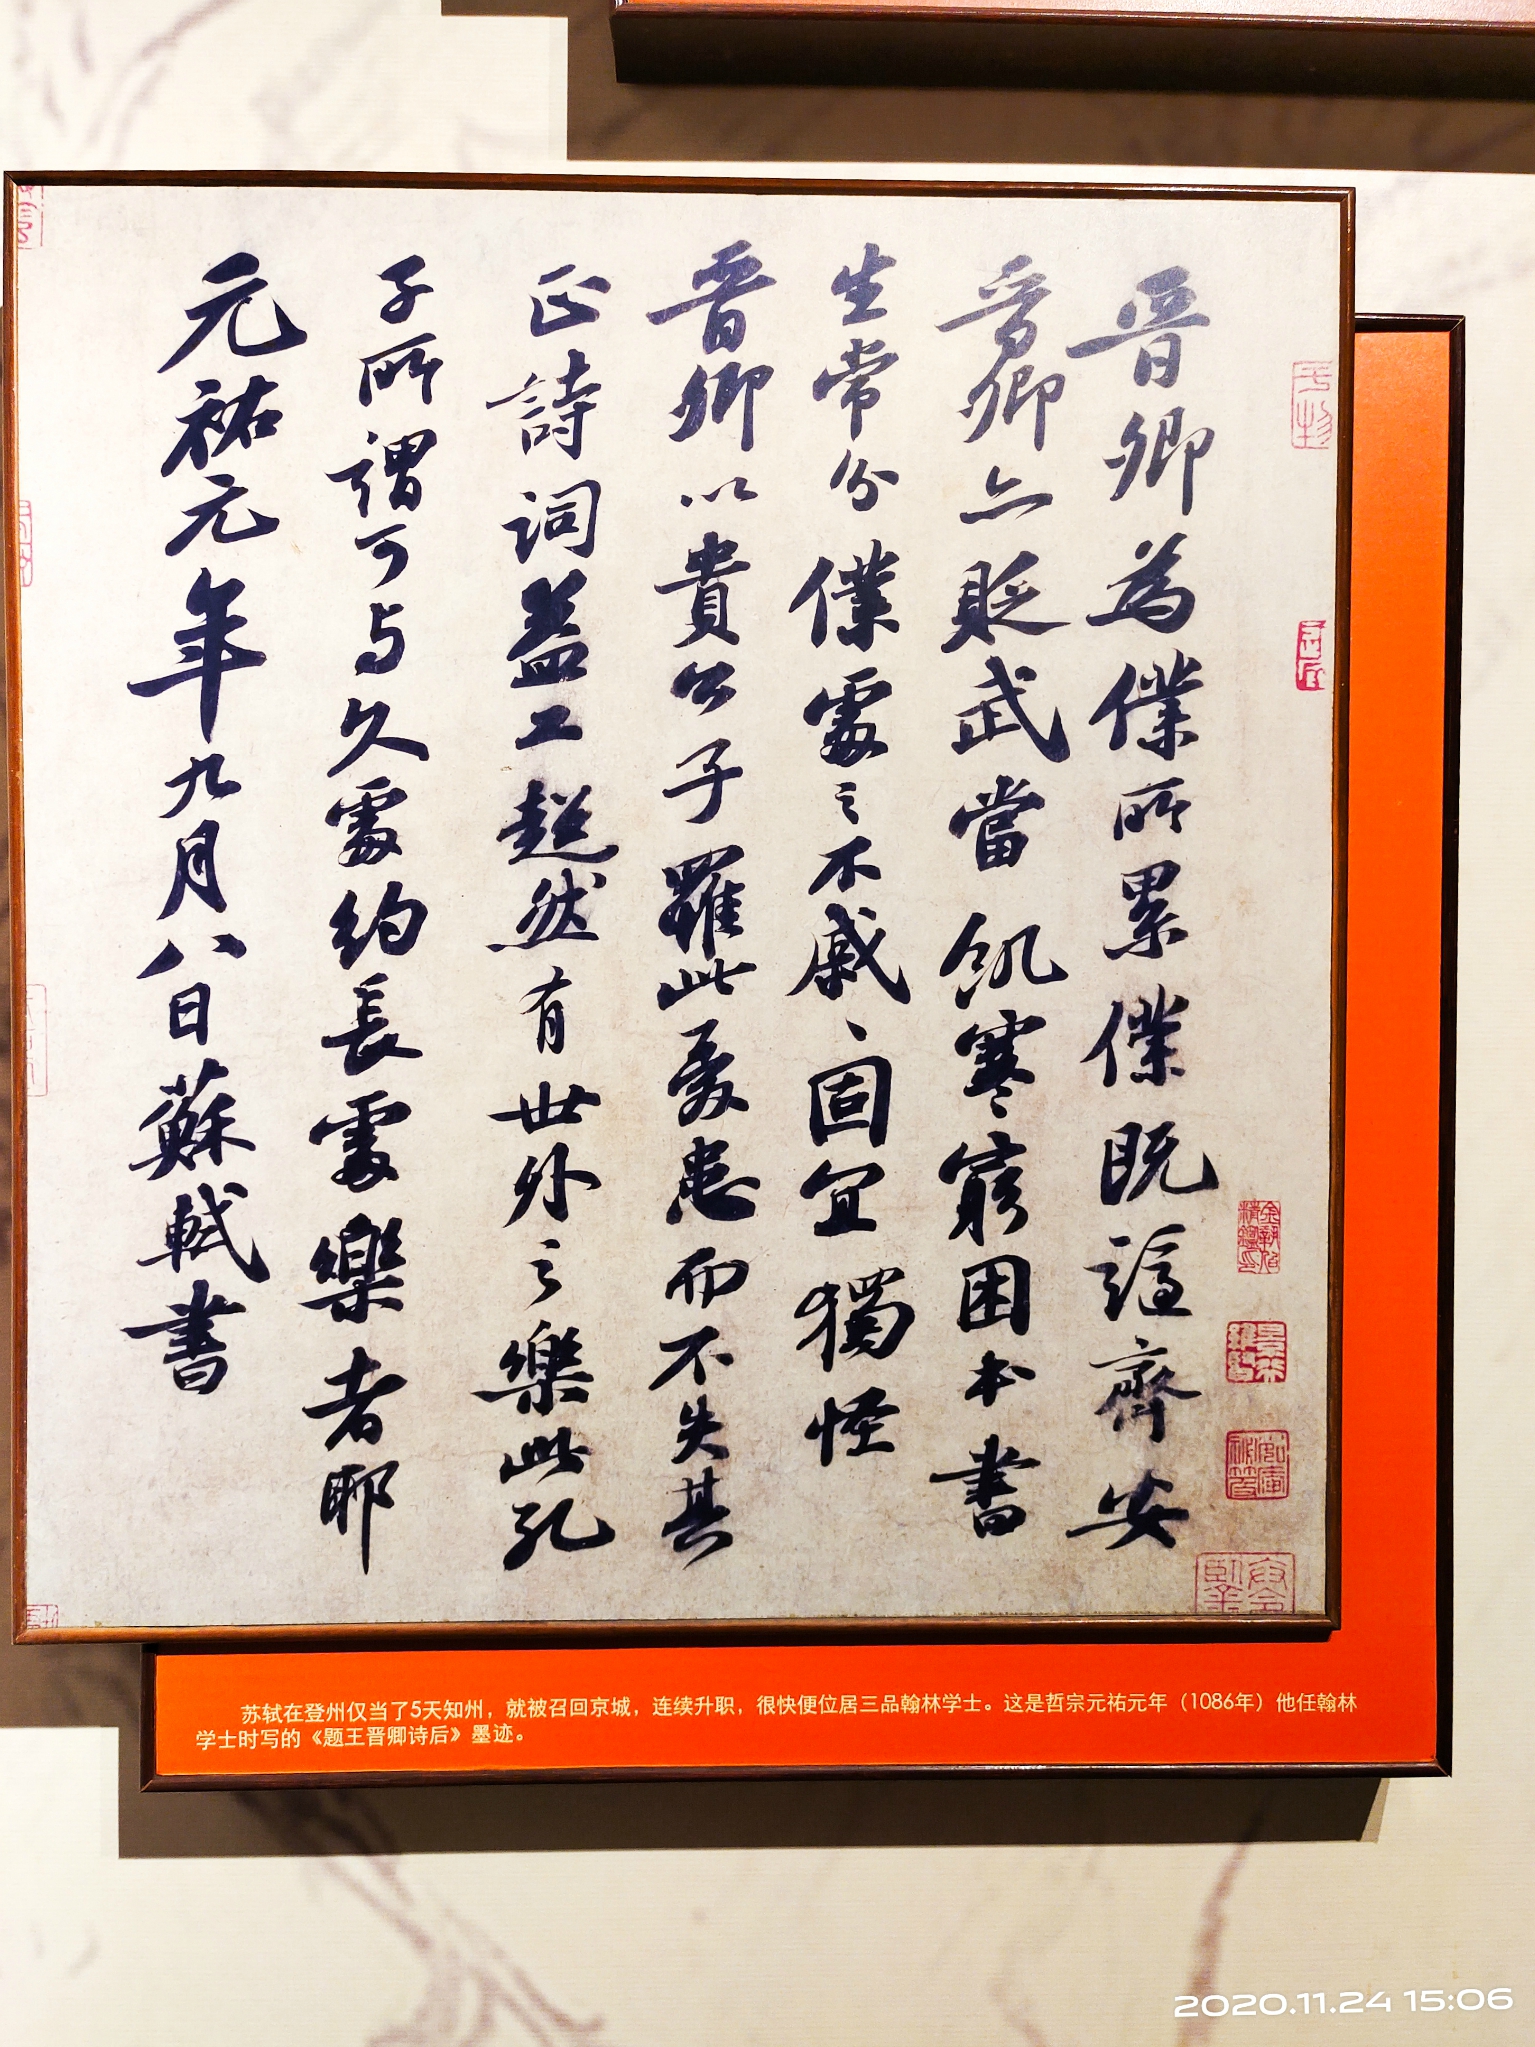 晋卿為僕所累僕既謫齊安
晋卿亦貶武當飢寒窮困本書
生常分僕處之不戚戚固宜獨怪
晋卿以貴公子罹此憂患而不失其
正詩詞益工超然有世外之樂此孔
子所謂可与久處約長處樂者耶
元祐元年九月八日蘇軾書
苏轼在登州仅当了5天知州，就被召回京城，连续升职，很快便位居三品翰林学士。这是哲宗元祐元年（1086年）他任翰林
学士时写的《题王晋卿诗后》墨迹。
2020.11.24 15:06